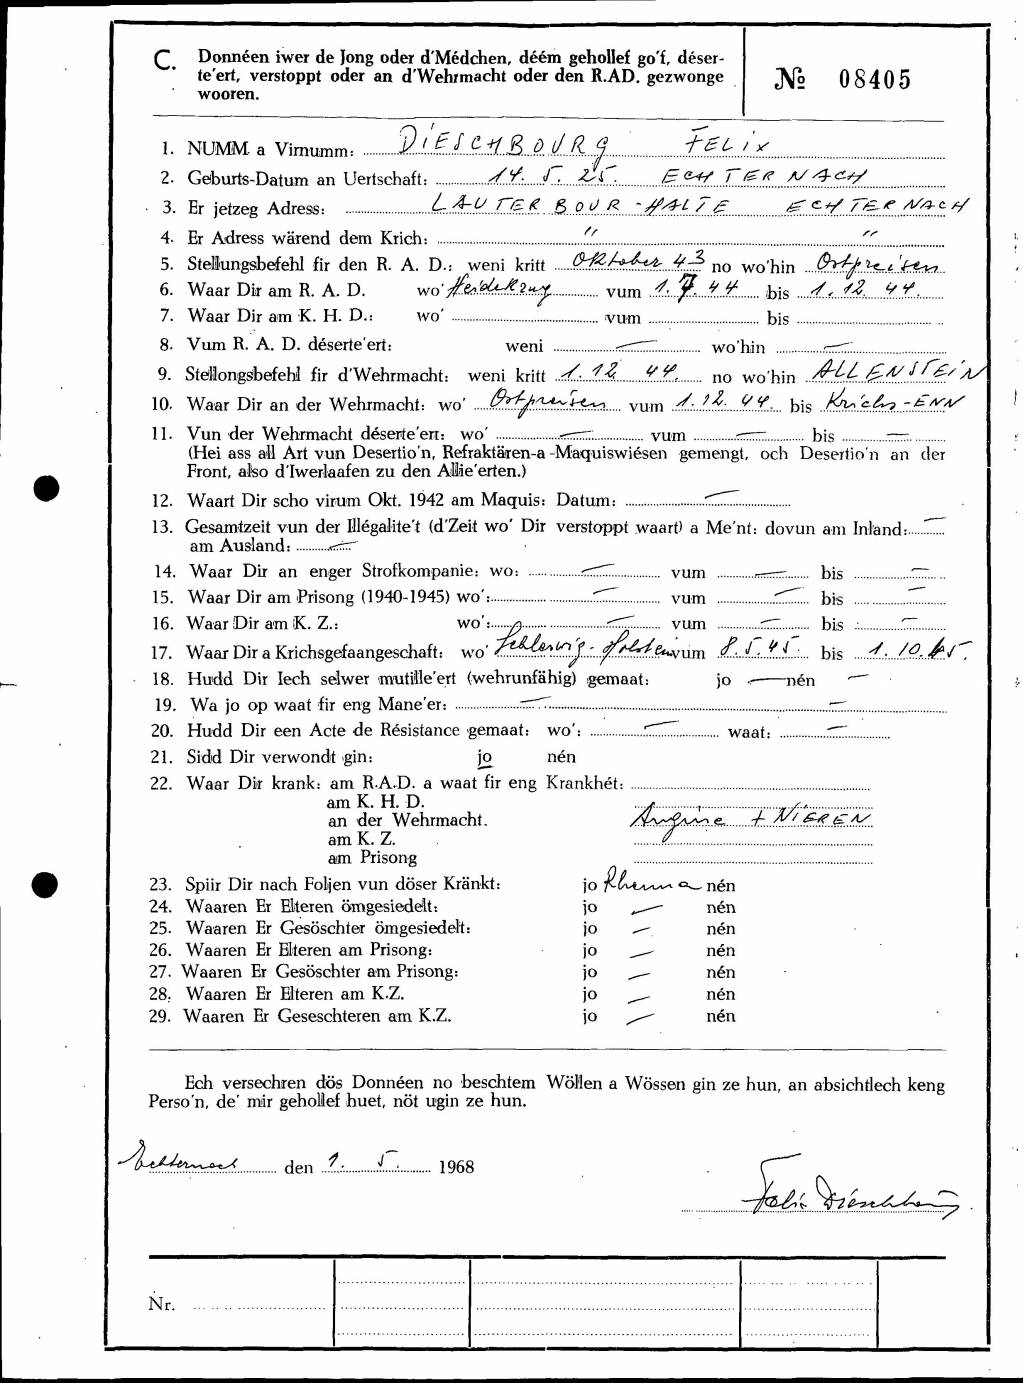 C. Donnéen iwer de Jong oder d'Médchen, déém gehollef go'f, déser-
te'ert, verstoppt oder an d'Wehrmacht oder den R.AD. gezwonge
wooren.
№ 08405
1. NUMM a Virnumm: DIESCHBOURG FELIX
2. Geburts-Datum an Uertschaft: 14. 5. 25. ECHTERNACH
3. Er jetzeg Adress: LAUTERBOUR-HALTE ECHTERNACH
4. Er Adress wärend dem Krich: " "
5. Stellungsbefehl fir den R. A. D.: weni kritt Oktober 43 no wo'hin Ostpreisen
6. Waar Dir am R. A. D. wo' Heidekrug vum 1. 7. 44 bis 1. 12. 44.
7. Waar Dir am K. H. D.: wo' vum bis
8. Vum R. A. D. déserte'ert: weni — wo'hin —
9. Stellongsbefehl fir d'Wehrmacht: weni kritt 1. 12. 44. no wo'hin ALLENSTEIN
10. Waar Dir an der Wehrmacht: wo' Ostpreisen vum 1. 12. 44. bis Krichs-ENN
11. Vun der Wehrmacht déserte'ert: wo' — vum — bis —
(Hei ass all Art vun Desertio'n, Refraktären-a-Maquiswiésen gemengt, och Desertio'n an der
Front, also d'Iwerlaafen zu den Allie'erten.)
12. Waart Dir scho virum Okt. 1942 am Maquis: Datum: —
13. Gesamtzeit vun der Illégalite't (d'Zeit wo' Dir verstoppt waart) a Me'nt: dovun am Inland: —
am Ausland: —
14. Waar Dir an enger Strofkompanie: wo: — vum — bis —
15. Waar Dir am Prisong (1940-1945) wo': — vum — bis —
16. Waar Dir am K. Z.: wo': — vum — bis —
17. Waar Dir a Krichsgefaangeschaft: wo' Schleswig-Holstein vum 8. 5. 45. bis 1. 10. 45.
18. Hudd Dir Iech selwer mutille'ert (wehrunfähig) gemaat: jo — nén —
19. Wa jo op waat fir eng Mane'er: — —
20. Hudd Dir een Acte de Résistance gemaat: wo': — waat: —
21. Sidd Dir verwondt gin: jo nén
22. Waar Dir krank: am R.A.D. a waat fir eng Krankhét:
am K. H. D.
an der Wehrmacht. Angine + NIEREN
am K. Z.
am Prisong
23. Spiir Dir nach Foljen vun döser Kränkt: jo Rheuma nén
24. Waaren Er Elteren ömgesiedelt: jo — nén
25. Waaren Er Gesöschter ömgesiedelt: jo — nén
26. Waaren Er Elteren am Prisong: jo — nén
27. Waaren Er Gesöschter am Prisong: jo — nén
28. Waaren Er Elteren am K.Z. jo — nén
29. Waaren Er Geseschteren am K.Z. jo — nén
Ech versechren dös Donnéen no beschtem Wöllen a Wössen gin ze hun, an absichtlech keng
Perso'n, de' mir gehollef huet, nöt ugin ze hun.
Echternach den 1. 5. 1968
Felix Dieschbourg
Nr.